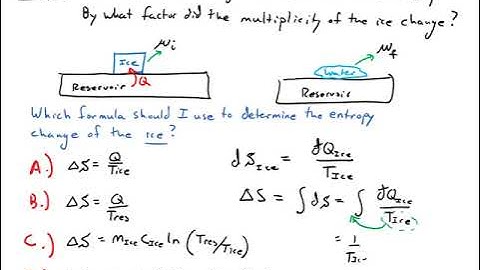 By what factor did the multiplicity of the ice change?
μi
Ice
Q
Reservoir
μf
Water
Reservoir
Which formula should I use to determine the entropy
change of the ice?
A.) ΔS = Q/Tice
B.) ΔS = Q/Tres
C.) ΔS = mIce CIce ln (Tres/Tice)
đSIce = đQIce/TIce
ΔS = ∫dS = ∫ đQIce/TIce
= 1/TIc